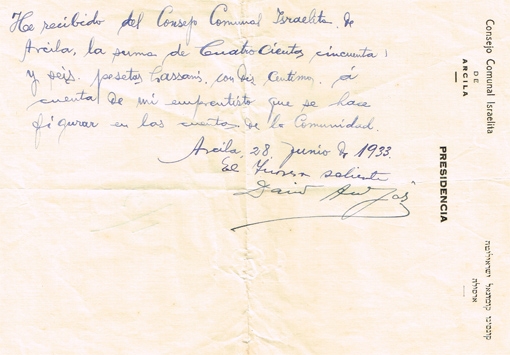 He recibido del Consejo Comunal Israelita de
Arcila, la suma de Cuatro Cientos cincuenta
y seis pesetas Hassani, con diez centimos, á
cuenta de mi emprestisto que se hace
figurar en las cuentas de la Comunidad.
Arcila, 28 Junio de 1933.
El Tesorero saliente
David
Consejo Comunal Israelita
DE
ARCILA
PRESIDENCIA